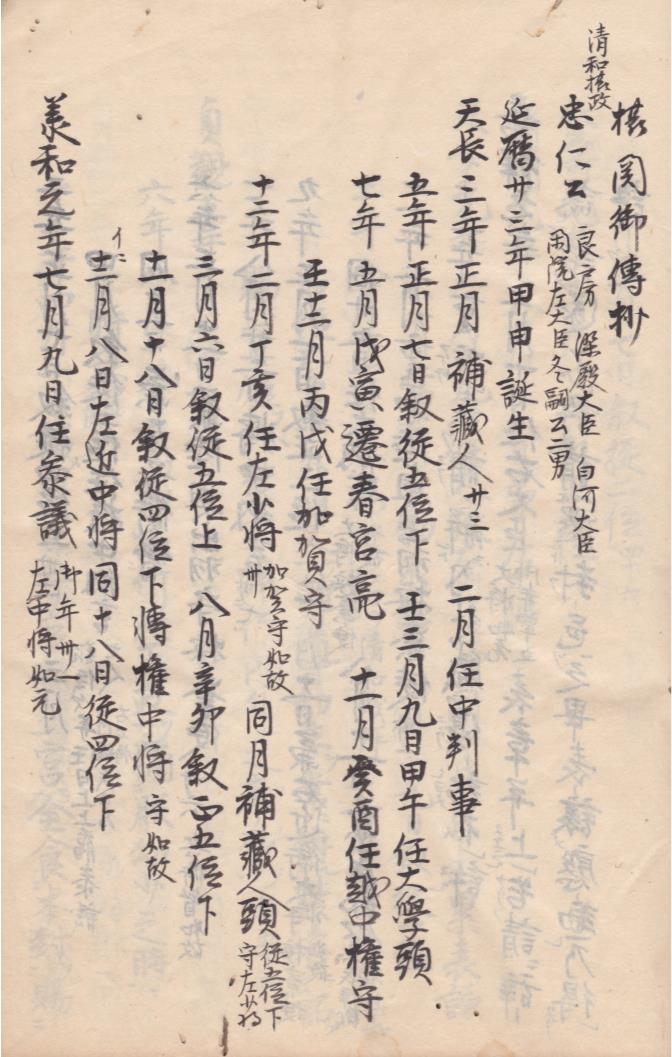 摂関御傳抄
清和摂政
忠仁公 良房 深殿大臣 白河大臣
閑院左大臣冬嗣公二男
延暦廿三年甲申誕生
天長三年正月 補藏人 廿三 二月任中判事
五年正月七日叙従五位下 壬三月九日甲午任大學頭
七年五月戊寅遷春宮亮 十一月癸酉任越中權守
壬十二月丙戊任加賀守
十二年二月丁亥任左少將 廿 加賀守如故 同月補藏人頭 従五位下 守左少将
三月六日叙従五位上 八月辛卯叙正五位下
十一月十八日叙従四位下 轉權中將 守如故
イニ
十二月八日左近中將 同十八日従四位下
義和元年七月九日任参議 御年卅一 左中將如元